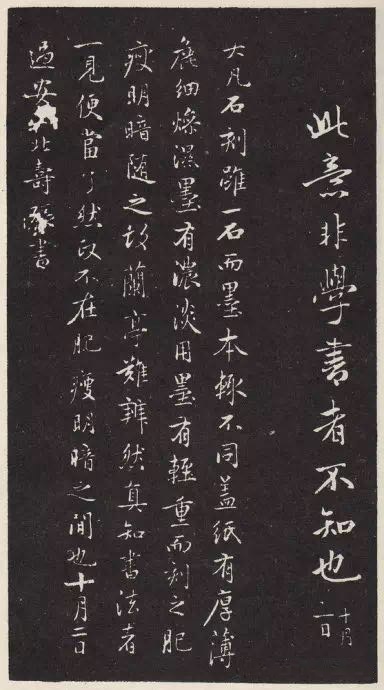 此意非學書者不知也
十月
一日
大凡石刻雖一石而墨本輒不同蓋紙有厚薄
麤細燥濕墨有濃淡用墨有輕重而刻之肥
瘦明暗隨之故蘭亭難辨然真知書法者
一見便當了然政不在肥瘦明暗之間也十月二日
過安北壽書